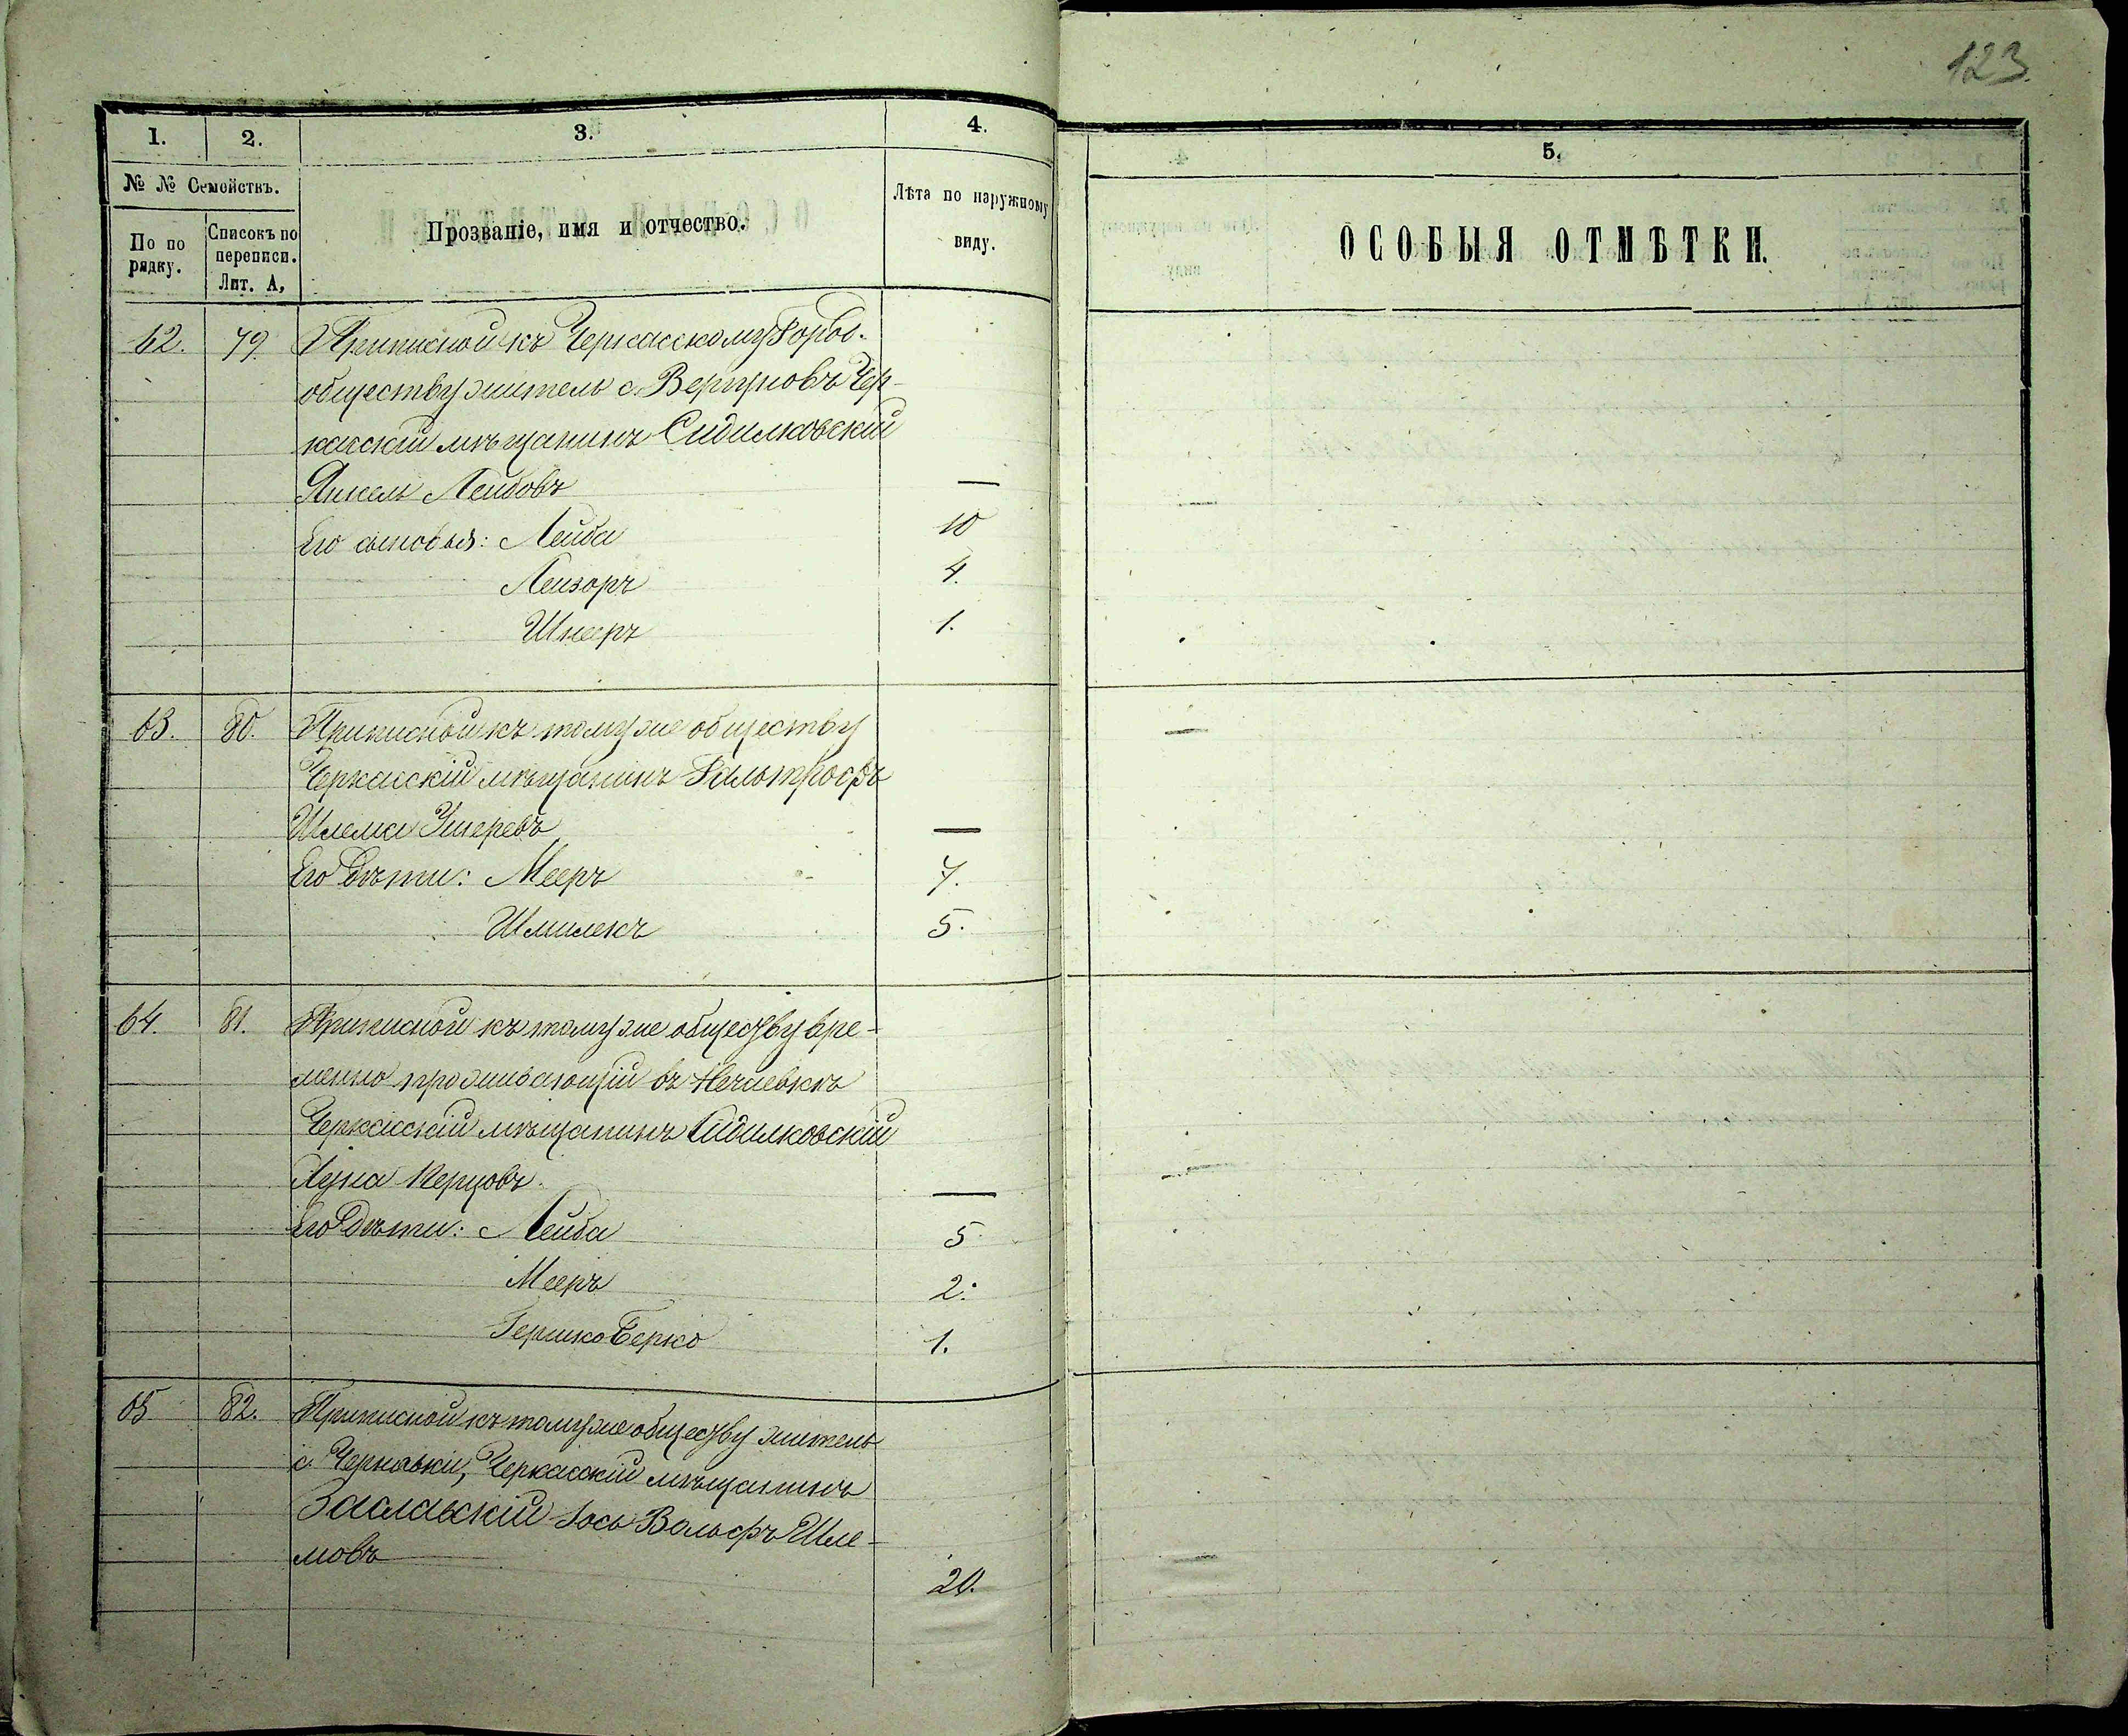 123.
1. 2. 3. 4. 5.
№ № Семействъ.
По по рядку.
Списокъ по переписи. Лит. А,
Прозваніе, имя и отчество.
Лѣта по наружному виду.
ОСОБЫЯ ОТМѢТКИ.
62. 79. Приписной къ Черкасскому Евр. об.
обществу житель с. Вергуновъ Чер-
касскій мѣщанинъ Сидилковскій
Янкель Лейбовъ —
Его сыновья: Лейба 10
Лейзоръ 4.
Шнееръ 1.
63. 80. Приписной къ тому же обществу
Черкасскій мѣщанинъ Гальтрофъ
Шлема Ушеревъ —
Его дѣти: Мееръ 7.
Шмилекъ 5.
64. 81. Приписной къ тому же обществу вре-
менно проживающій въ Нечаевкѣ
Черкасскій мѣщанинъ Сидилковскій
Хуна Керцовъ. —
Его дѣти: Лейба 5
Мееръ 2.
Гершко Берко 1.
65 82. Приписной къ тому же обществу житель
с. Чернявки, Черкасскій мѣщанинъ
Заславскій Іось Вольфъ Шле-
мовъ 20.